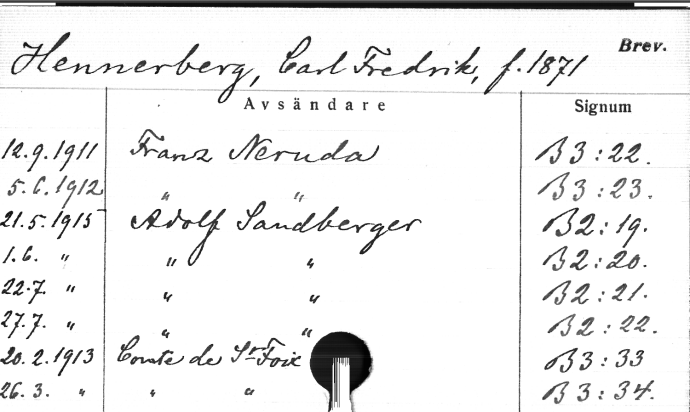 Brev.
Hennerberg, Carl Fredrik, f. 1871
Avsändare Signum
12.9.1911 Franz Neruda B3:22.
5.6.1912 " " B3:23.
21.5.1915 Adolf Sandberger B2:19.
1.6. " " " B2:20.
22.7. " " " B2:21.
27.7. " " " B2:22.
20.2.1913 Comte de St Foix B3:33
26.3. " " " B3:34.